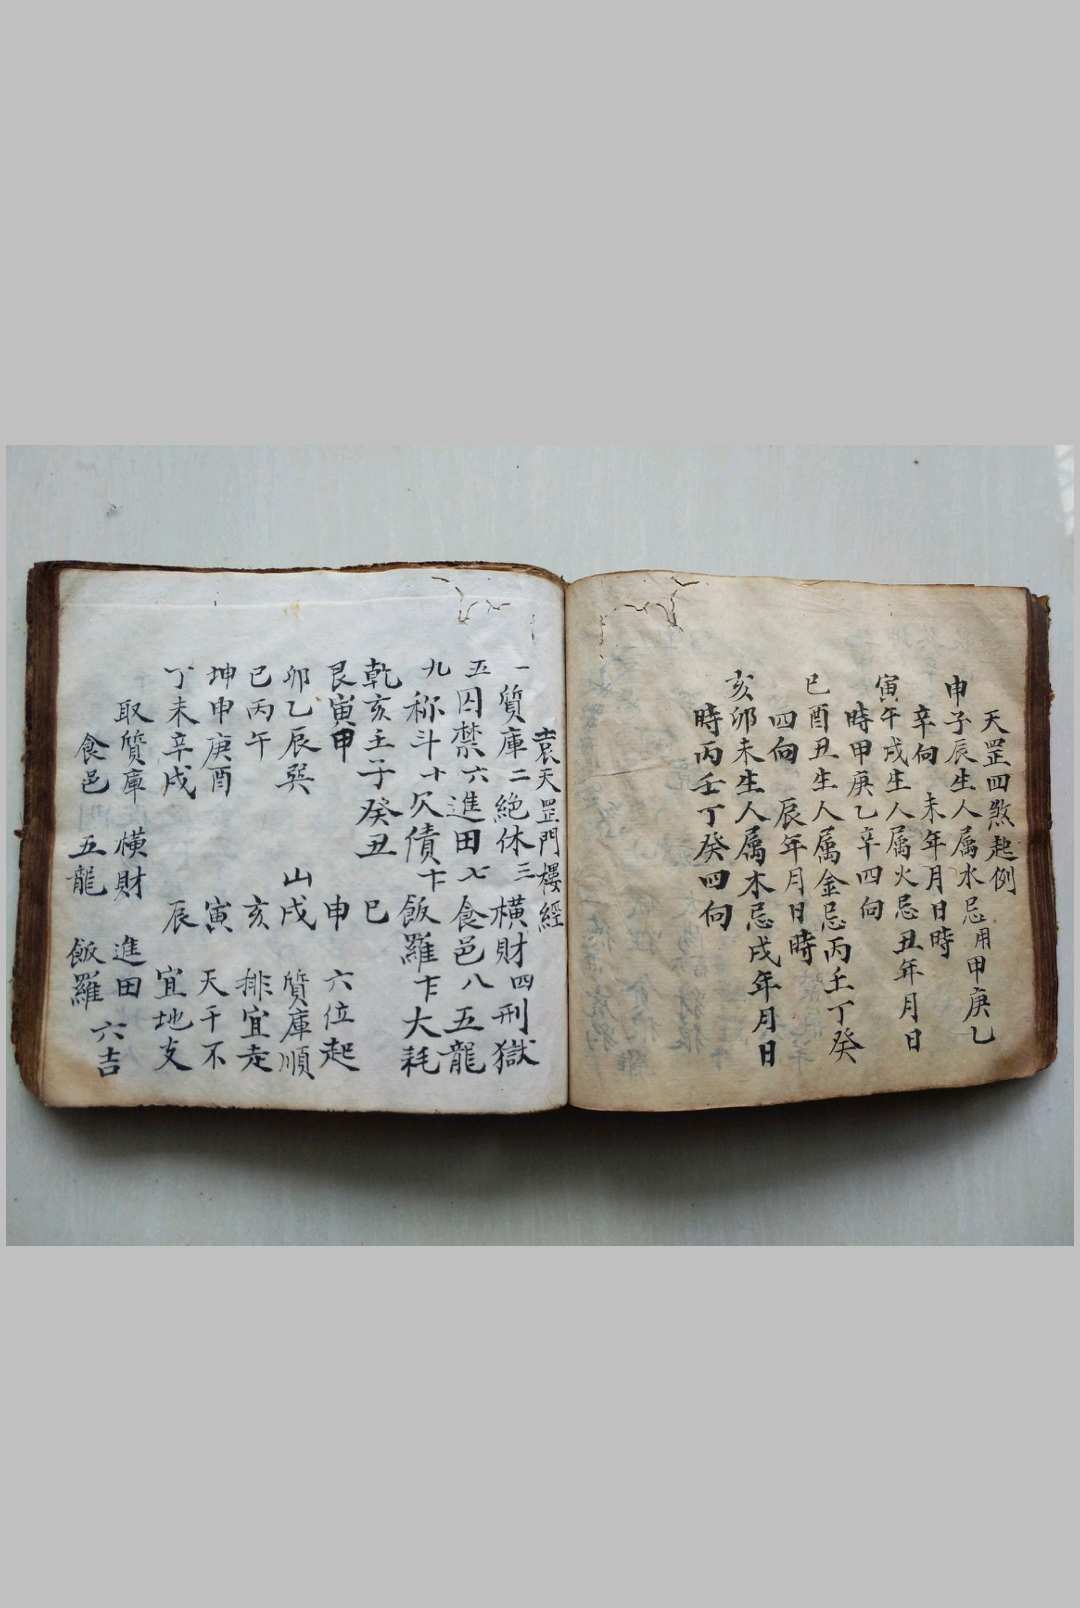 天罡四煞起例
申子辰生人属水忌用甲庚乙
辛向 未年月日時
寅午戌生人属火忌丑年月日
時甲庚乙辛四向
巳酉丑生人属金忌丙壬丁癸
四向 辰年月日時
亥卯未生人属木忌戌年月日
時丙壬丁癸四向
袁天罡門樓經
一質庫二絶休三横財四刑獄
五囚禁六進田七食邑八五龍
九称斗十欠債十飯羅大耗
乾亥壬子癸丑 巳
艮寅甲 申 六位起
卯乙辰巽 山戌 質庫順
巳丙午 亥 排宜走
坤申庚酉 寅 天干不
丁未辛戌 辰 宜地支
取質庫 横財 進田
食邑 五龍 飯羅 六吉